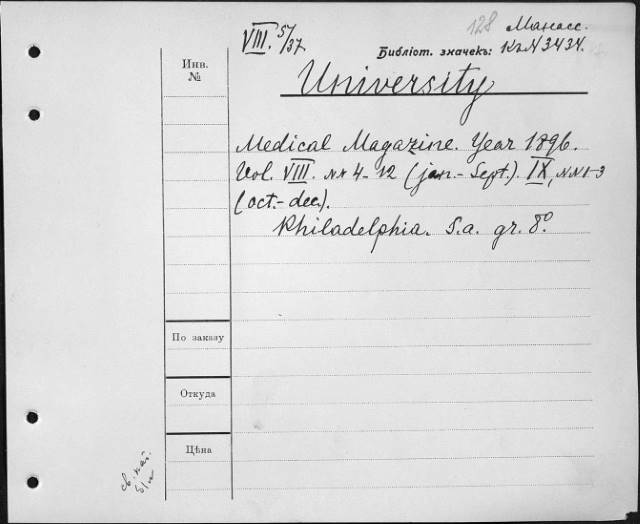 VIII. 5/37.
128 Манасс.
Библіот. значекъ: Кг N 3434.
Инв. №
University
Medical Magazine. Year 1896.
Vol. VIII. NN 4-12 (jan.-Sept.). IX, NN 1-3
(oct.-dec.).
Philadelphia. S.a. gr. 8º
По заказу
Откуда
Цѣна
св. кат.